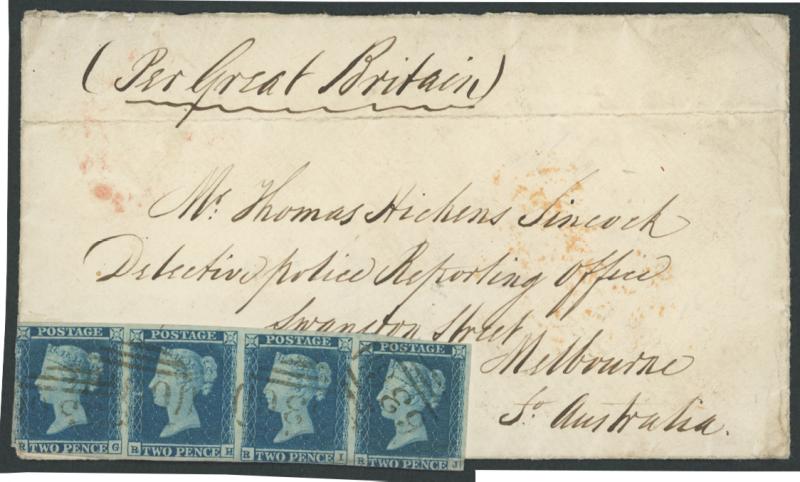 (Per Great Britain)
Mr. Thomas Hickens Sincock
Detective police Reporting Office
Swanston Street
Melbourne
So. Australia.
POSTAGE POSTAGE POSTAGE POSTAGE
R TWO PENCE G R TWO PENCE H R TWO PENCE I R TWO PENCE J